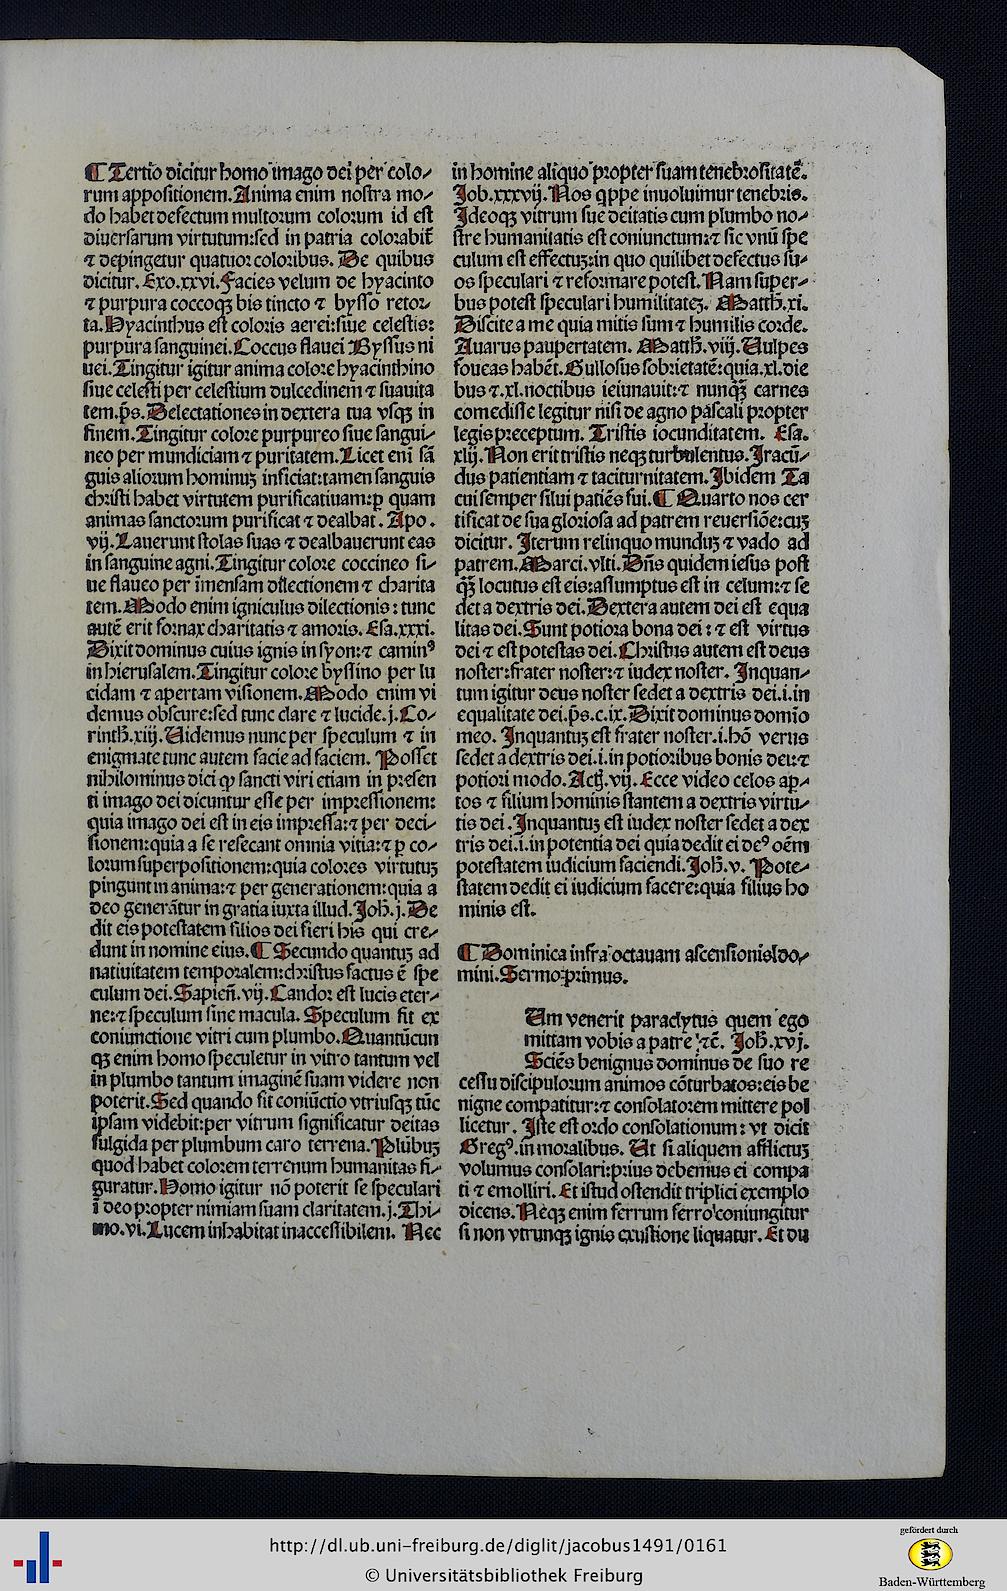 ¶ Tertio dicitur homo imago dei per colo⸗
rum appositionem. Anima enim nostra mo⸗
do habet defectum multorum colorum id est
diuersarum virtutum: sed in patria colorabit̃
⁊ depingetur quatuor coloribus. De quibus
dicitur. Exo. xxvi. Facies velum de hyacinto
⁊ purpura coccoqꝫ bis tincto ⁊ bysso retor⸗
ta. Hyacinthus est coloris aerei: siue celestis:
purpura sanguinei. Coccus flauei Byssus ni
uei. Tingitur igitur anima colore hyacinthino
siue celesti per celestium dulcedinem ⁊ suauita
tem. p̃s. Delectationes in dextera tua vsqꝫ in
finem. Tingitur colore purpureo siue sangui⸗
neo per mundiciam ⁊ puritatem. Licet eni sã
guis aliorum hominuꝫ inficiat: tamen sanguis
christi habet virtutem purificatiuam: ꝑ quam
animas sanctorum purificat ⁊ dealbat. Apo.
vij. Lauerunt stolas suas ⁊ dealbauerunt eas
in sanguine agni. Tingitur colore coccineo si⸗
ue flaueo per ĩmensam dilectionem ⁊ charita
tem. Modo enim igniculus dilectionis: tunc
autẽ erit fornax charitatis ⁊ amoris. Esa. xxxi.
Dixit dominus cuius ignis in syon: ⁊ caminꝰ
in hierusalem. Tingitur colore byssino per lu
cidam ⁊ apertam visionem. Modo enim vi
demus obscure: sed tunc clare ⁊ lucide. j. Co⸗
rinth̃. xiij. Uidemus nunc per speculum ⁊ in
enigmate tunc autem facie ad faciem. Posset
nihilominus dici ꝙ sancti viri etiam in presen
ti imago dei dicuntur esse per impressionem:
quia imago dei est in eis impressa: ⁊ per deci⸗
sionem: quia a se resecant omnia vitia: ⁊ ꝑ co⸗
lorum superpositionem: quia colores virtutuꝫ
pingunt in anima: ⁊ per generationem: quia a
deo generãtur in gratia iuxta illud. Joh̃. j. De
dit eis potestatem filios dei fieri his qui cre⸗
dunt in nomine eius. ¶ Secundo quantuꝫ ad
natiuitatem temporalem: christus factus ẽ spe
culum dei. Sapieñ. vij. Candor est lucis eter⸗
ne: ⁊ speculum sine macula. Speculum fit ex
coniunctione vitri cum plumbo. Quantũcun
qꝫ enim homo speculetur in vitro tantum vel
in plumbo tantum imaginẽ suam videre non
poterit. Sed quando fit coniũctio vtriusqꝫ tũc
ipsam videbit: per vitrum significatur deitas
fulgida per plumbum caro terrena. Plũbuꝫ
quod habet colorem terrenum humanitas fi⸗
guratur. Homo igitur nõ poterit se speculari
ĩ deo propter nimiam suam claritatem. j. Thi⸗
mo. vi. Lucem inhabitat inaccessibilem. Nec
in homine aliquo propter suam tenebrositatẽ.
Job. xxxvij. Nos qppe inuoluimur tenebris.
Ideoqꝫ vitrum sue deitatis cum plumbo no⸗
stre humanitatis est coniunctum: ⁊ sic vnũ spe
culum est effectuꝫ: in quo quilibet defectus su⸗
os speculari ⁊ reformare potest. Nam super⸗
bus potest speculari humilitateꝫ. Matth̃. xi.
Discite a me quia mitis sum ⁊ humilis corde.
Auarus paupertatem. Matth̃. viij. Uulpes
foueas habẽt. Gullosus sobrietatẽ: quia. xl. die
bus ⁊. xl. noctibus ieiunauit: ⁊ nunqꝫ̃ carnes
comediste legitur nisi de agno pascali propter
legis preceptum. Tristis iocunditatem. Esa.
xlij. Non erit tristis neqꝫ turbulentus. Iracũ⸗
dus patientiam ⁊ taciturnitatem. Ibidem Ta
cui semper silui patiẽs fui. ¶ Quarto nos cer
tificat de sua gloriosa ad patrem reuersiõe: cuꝫ
dicitur. Iterum relinquo munduꝫ ⁊ vado ad
patrem. Marci. vlti. Dñs quidem iesus post
qꝫ̃ locutus est eis: assumptus est in celum: ⁊ se
det a dextris dei. Dextera autem dei est equa
litas dei. Sunt potiora bona dei: ⁊ est virtus
dei ⁊ est potestas dei. Christus autem est deus
noster: frater noster: ⁊ iudex noster. Inquan⸗
tum igitur deus noster sedet a dextris dei. i. in
equalitate dei. p̃s. c. ix. Dixit dominus domĩo
meo. Inquantuꝫ est frater noster. i. hõ verus
sedet a dextris dei. i. in potioribus bonis dei: ⁊
potiori modo. Act̃. vij. Ecce video celos ap⸗
tos ⁊ filium hominis stantem a dextris virtu⸗
tis dei. Inquantuꝫ est iudex noster sedet a dex
tris dei. i. in potentia dei quia dedit ei deꝰ oẽm
potestatem iudicium faciendi. Joh̃. v. Pote⸗
statem dedit ei iudicium facere: quia filius ho
minis est.
¶ Dominica infra octauam ascensionis do⸗
mini. Sermo primus.
Um venerit paraclytus quem ego
mittam vobis a patre ⁊c̃. Joh̃. xvj.
Sciẽs benignus dominus de suo re
cessu discipulorum animos cõturbatos: eis be
nigne compatitur: ⁊ consolatorem mittere pol
licetur. Iste est ordo consolationum: vt dicit
Gregꝰ. in moralibus. Ut si aliquem afflictuꝫ
volumus consolari: prius debemus ei compa
ti ⁊ emolliri. Et istud ostendit triplici exemplo
dicens. Neqꝫ enim ferrum ferro coniungitur
si non vtrunqꝫ ignis exustione liquatur. Et du
http://dl.ub.uni-freiburg.de/diglit/jacobus1491/0161
© Universitätsbibliothek Freiburg
gefördert durch
Baden-Württemberg